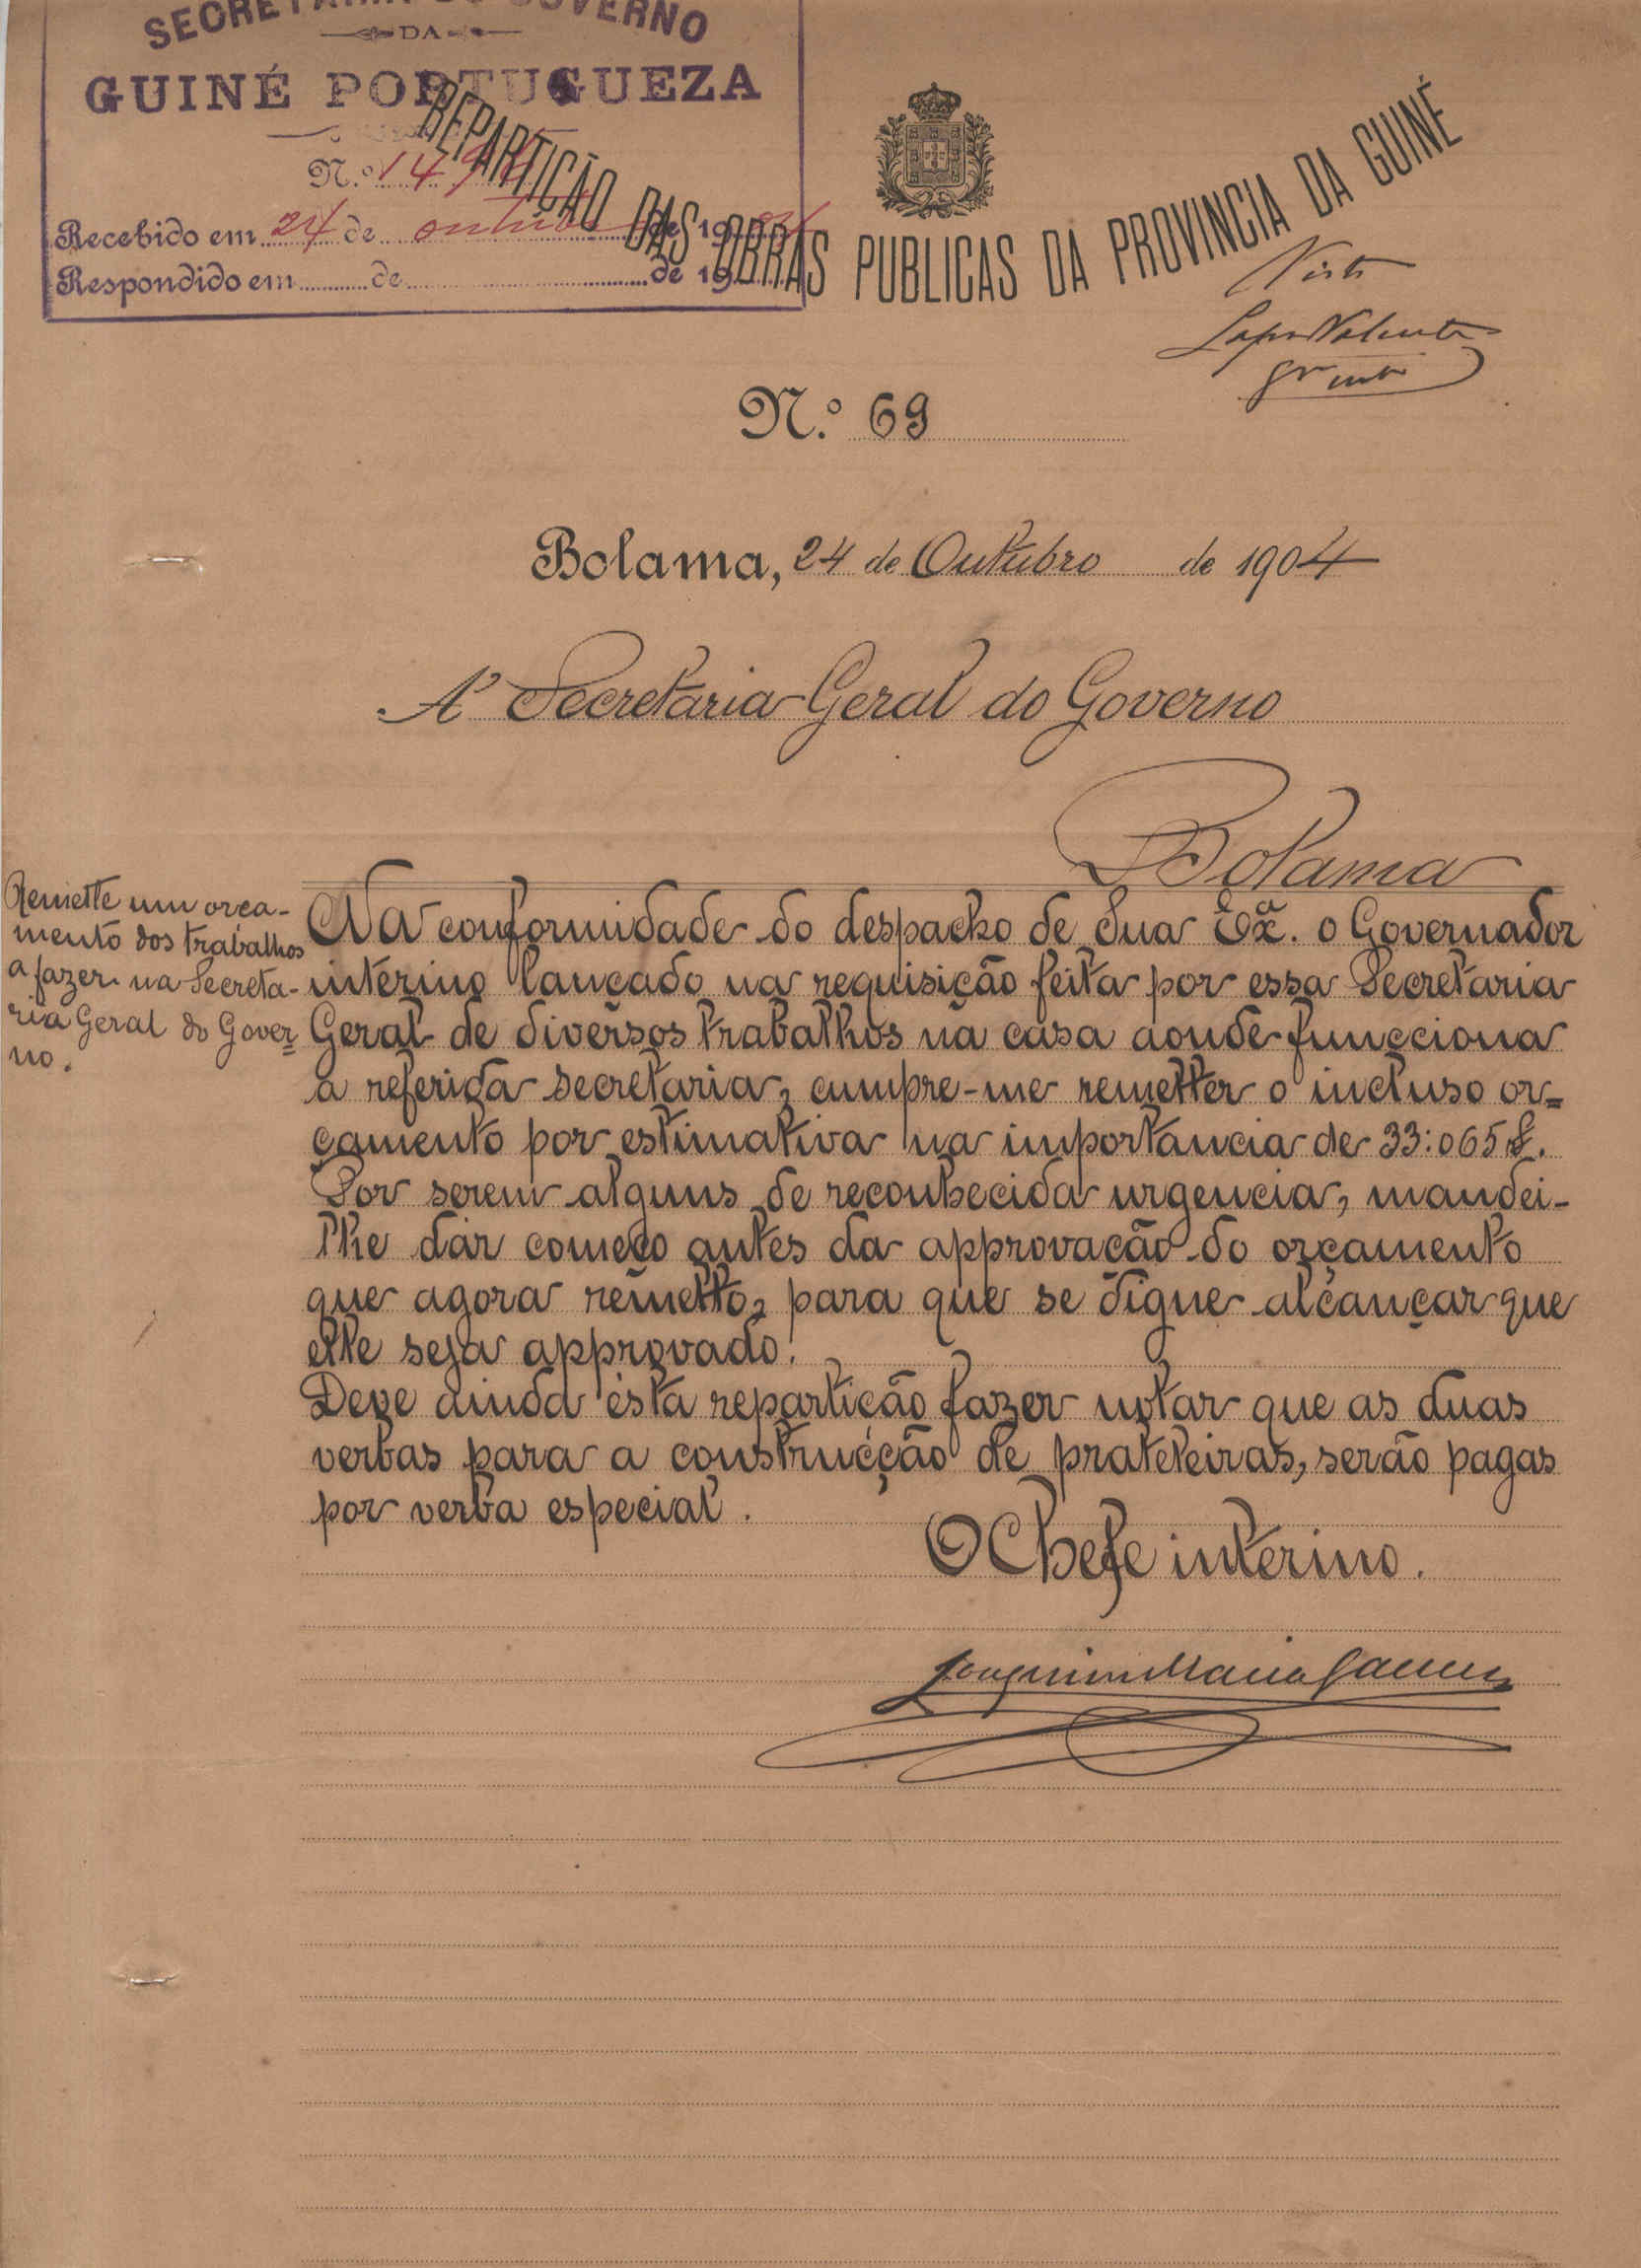 SECRETARIA DO GOVERNO
DA
GUINÉ PORTUGUEZA
N.º
Recebido em 24 de outubro de 1904
Respondido em de de 19
REPARTIÇÃO DAS OBRAS PUBLICAS DA PROVINCIA DA GUINÉ
Visto
N.º 69
Bolama, 24 de Outubro de 1904
Á Secretaria Geral do Governo
Bolama
Remette um orça-
mento dos trabalhos
a fazer na Secreta-
ria Geral do Gover=
no.
Na conformidade do despacho de Sua Exª. o Governador
interino lançado na requisição feita por essa Secretaria
Geral de diversos trabalhos na casa aonde funcciona
a referida secretaria, cumpre-me remetter o incluso or=
çamento por estimativa na importancia de 33:065 $.
Por serem alguns de reconhecida urgencia, mandei-
lhe dar começo antes da approvação do orçamento
que agora remetto, para que se digne alcançar que
elle seja approvado.
Deve ainda esta repartição fazer notar que as duas
verbas para a construcção de prateleiras, serão pagas
por verba especial.
O Chefe interino.
Joaquim Maria